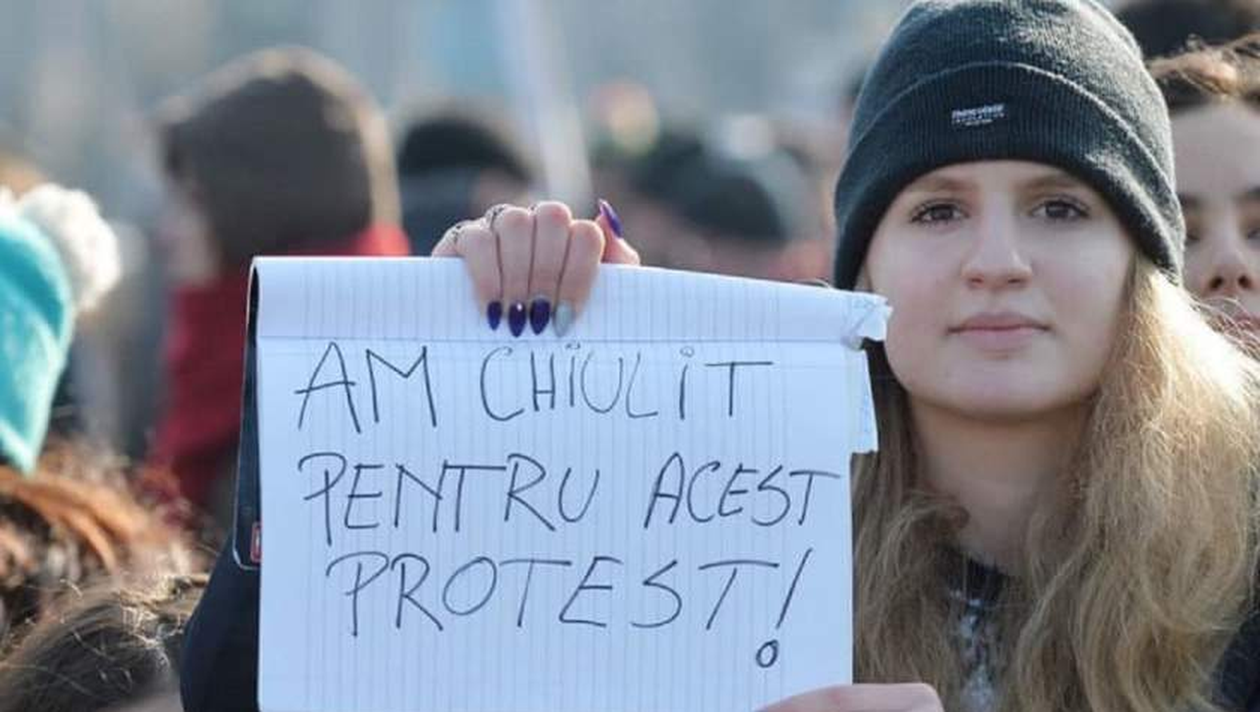 AM CHIULIT
PENTRU ACEST
PROTEST!